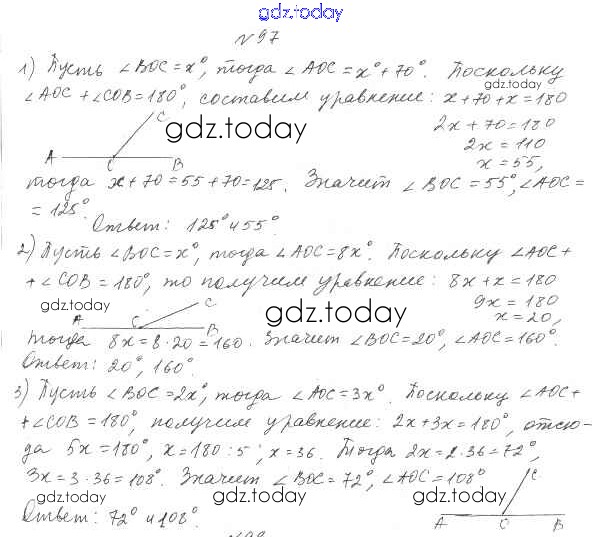 gdz.today
№97
1) Пусть ∠BOC = x°, тогда ∠AOC = x° + 70°. Поскольку
gdz.today
∠AOC + ∠COB = 180°, составим уравнение: x + 70 + x = 180
C
gdz.today
2x + 70 = 180
2x = 110
A C B
x = 55,
тогда x + 70 = 55 + 70 = 125. Значит ∠BOC = 55°, ∠AOC =
gdz.today
= 125°.
Ответ: 125° и 55°
2) Пусть ∠BOC = x°, тогда ∠AOC = 8x°. Поскольку ∠AOC +
gdz.today
+ ∠COB = 180°, то получим уравнение: 8x + x = 180
gdz.today
C
9x = 180
gdz.today
A C B
x = 20,
gdz.today
тогда 8x = 8 · 20 = 160. Значит ∠BOC = 20°, ∠AOC = 160°.
Ответ: 20°, 160°.
3) Пусть ∠BOC = 2x°, тогда ∠AOC = 3x°. Поскольку ∠AOC +
+ ∠COB = 180°, получим уравнение: 2x + 3x = 180°, отсю-
да 5x = 180°, x = 180 : 5, x = 36. Тогда 2x = 2 · 36 = 72°,
3x = 3 · 36 = 108°. Значит ∠BOC = 72°, ∠AOC = 108°
C
gdz.today gdz.today gdz.today
Ответ: 72° и 108°.
A O B